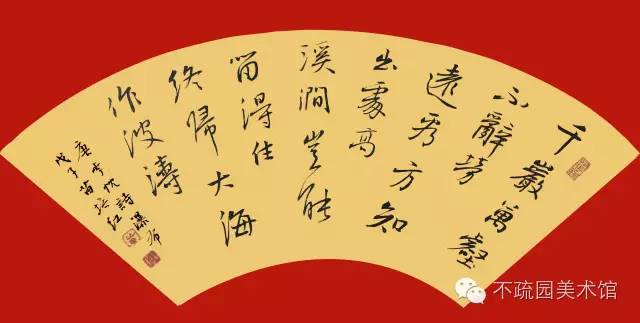 千巖萬壑
不辭勞
遠看方知
出處高
溪澗豈能
留得住
終歸大海
作波濤
唐李忱詩瀑布
戊子苗培红
不疏园美术馆